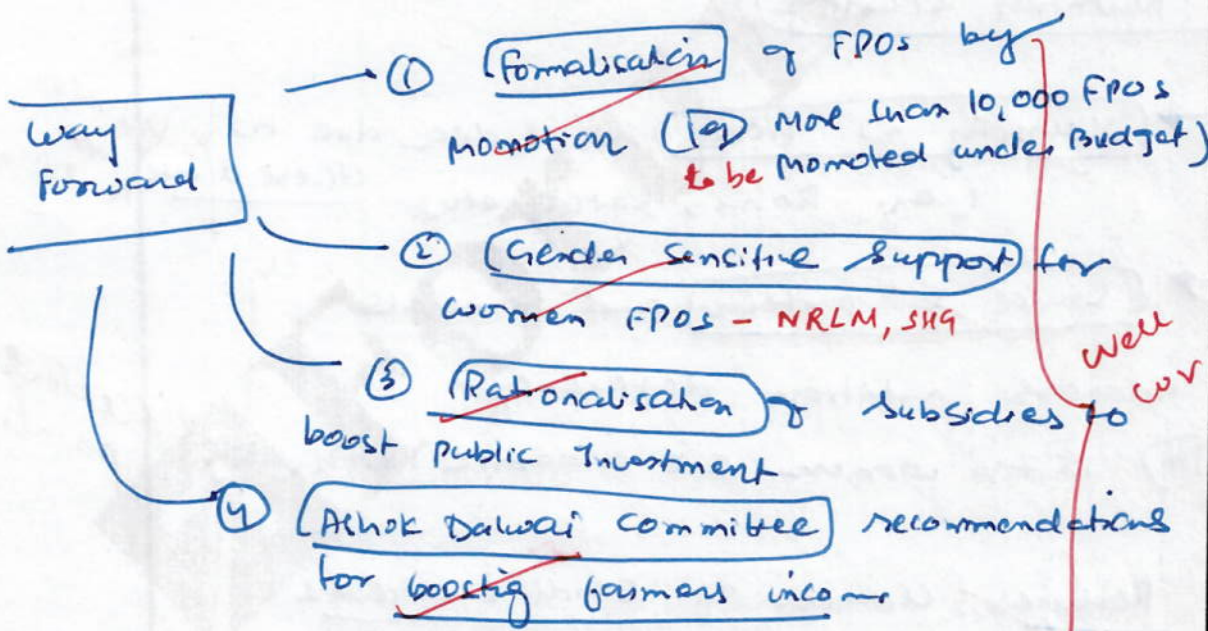 Way
Forward
① Formalisation of FPOs by
promotion (eg More than 10,000 FPOs
to be promoted under Budget)
② Gender Sensitive Support for
women FPOs - NRLM, SHG
③ Rationalisation of subsidies to
boost Public Investment
④ Ashok Dalwai Committee recommendations
for boostig farmers income
Well